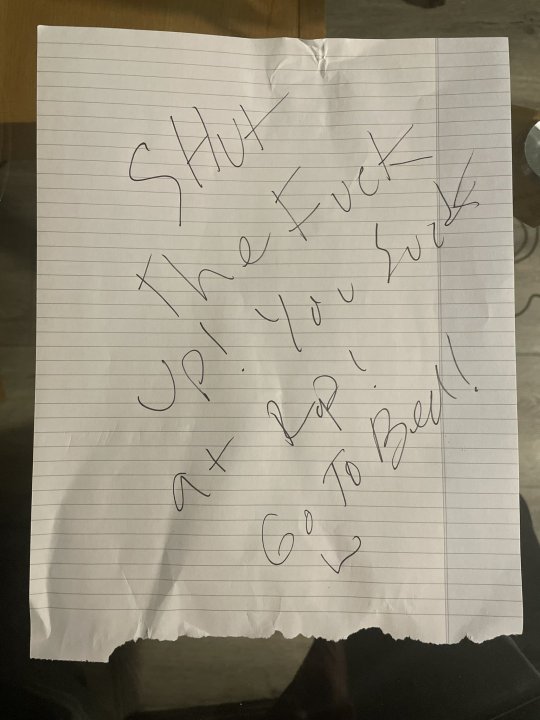 SHUt
The Fuck
UP! You Suck
at Rap!
Go To Bed!!